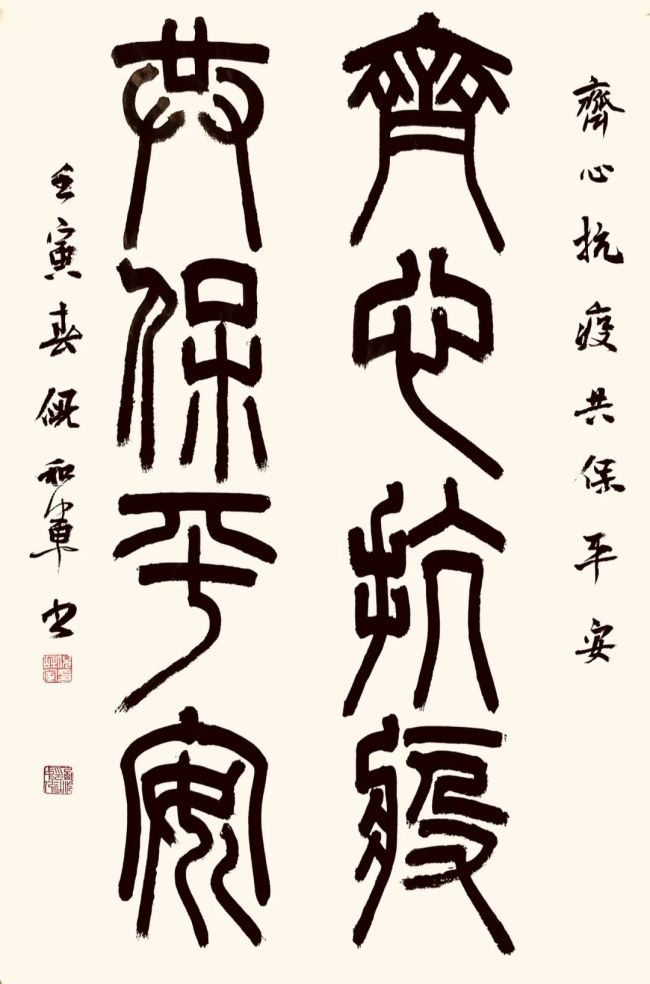 齊心抗疫共保平安
齊心抗疫
共保平安
壬寅春倪和軍書